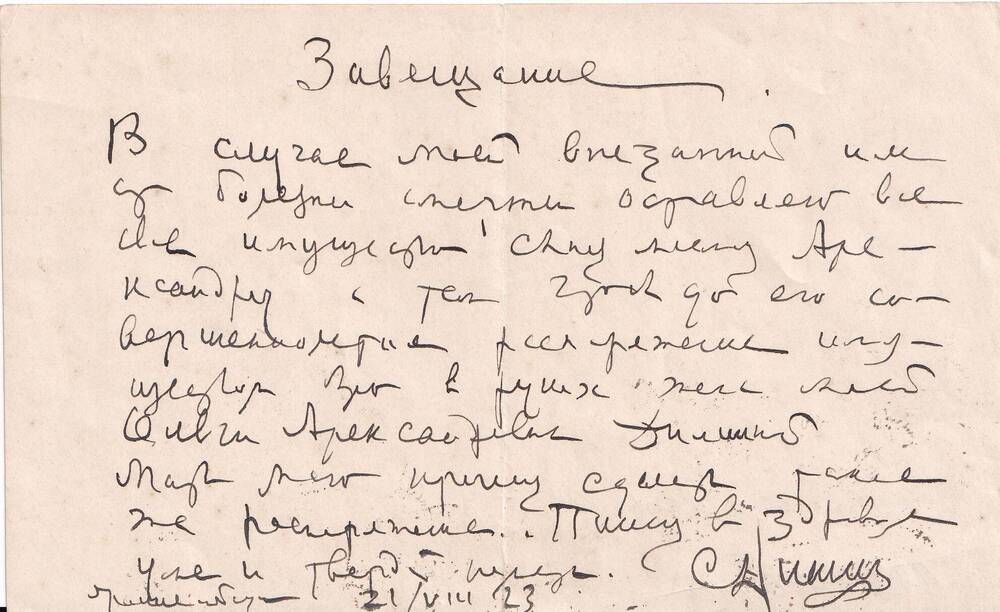 Завещание.
В случае моей внезапной или
от болезни смерти оставляю все
свое имущество сыну моему Але-
ксандру с тем чтоб до его со-
вершеннолетия распоряжение иму-
ществом было в руках жены моей
Ольги Александровны
мою прошу сделать такое
же распоряжение. Пишу в здравом
уме и твердой памяти.
21/VIII 23